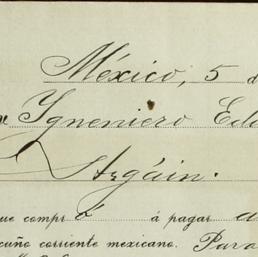 México, 5 d
Ygneniero Edu
Argáin.
ue compr ó á pagar a
cuño corriente mexicano. Para